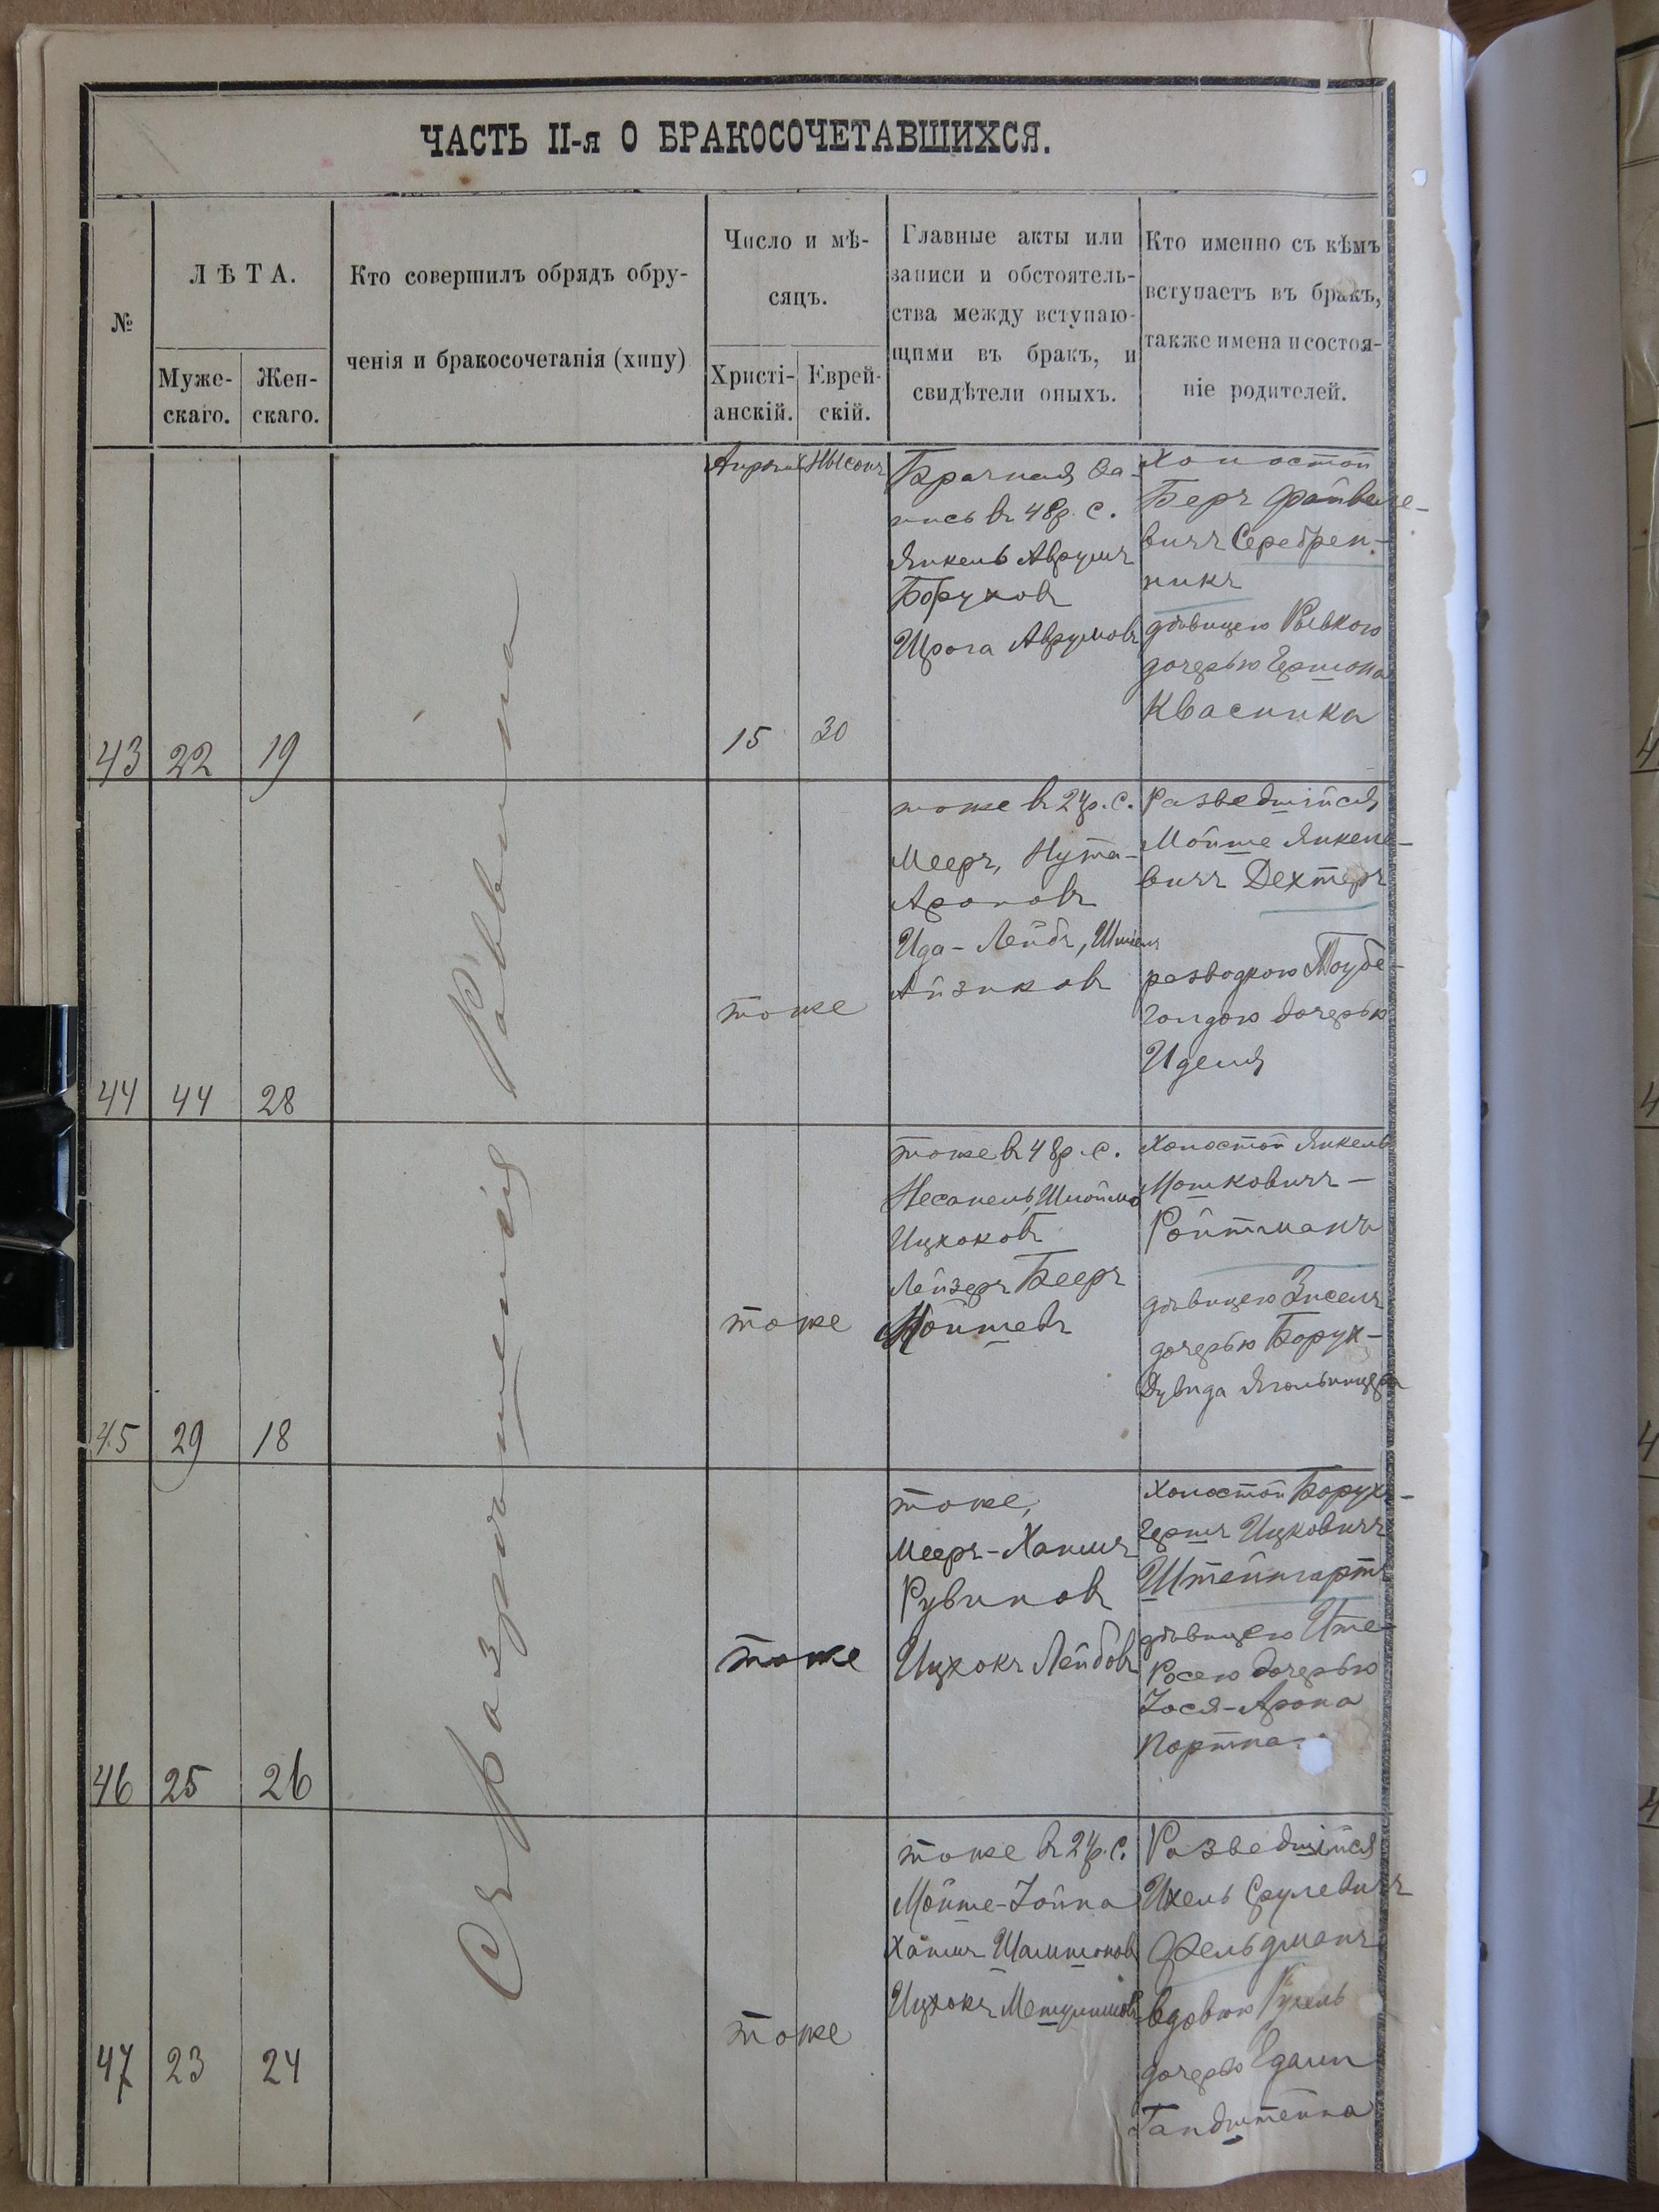 ЧАСТЬ II-я О БРАКОСОЧЕТАВШИХСЯ.
№
ЛѢТА.
Муже-
скаго.
Жен-
скаго.
Кто совершилъ обрядъ обру-
ченія и бракосочетанія (хипу)
Число и мѣ-
сяцъ.
Христі-
анскій.
Еврей-
скій.
Главные акты или
записи и обстоятель-
ства между вступаю-
щими въ бракъ, и
свидѣтели оныхъ.
Кто именно съ кѣмъ
вступаетъ въ бракъ,
также имена и состоя-
ніе родителей.
Съ Разрѣшенія Раввина
43
22
19
Апрѣль
15
Нисонъ
30
Брачная за-
пись въ 48 р. с.
Янкель Аврумъ
Боруховъ
Аврумовъ
Холостой
Беръ Файвеле-
вичъ Серебрен-
никъ
дѣвицею Рывкою
дочерью Гершона
Квасника
44
44
28
тоже
тоже въ 24 р. с.
Мееръ, Нута-
Ароновъ
Ида-Лейбъ,
Айзиковъ
Разведшійся
Мойше Янкеле-
вичъ Дехтяръ
разводкою Таубе-
Голдою дочерью
Иделя
45
29
18
тоже
тоже въ 48 р. с.
Несанель, Шлойма
Ицхоковъ
Лейзеръ Бееръ
Мойшевъ
Холостой Янкель
Мошковичъ-
Ройтманъ
дѣвицею Зисель
дочерью Борух-
Дувида Ягольницера
46
25
26
тоже
тоже,
Мееръ-Хаимъ
Рувиновъ
Ицхокъ Лейбовъ
Холостой Борухъ-
Гершъ Ицковичъ
Штейнгартъ
дѣвицею Ите-
Росею дочерью
Іося-Арона
47
23
24
тоже
тоже въ 24 р. с.
Мойше-Іойна
Хаимъ Шамшоновъ
Ицхокъ
Разведшійся
Ихель Срулевичъ
Фельдманъ
вдовою Рухель
дочерью
Гандштейна